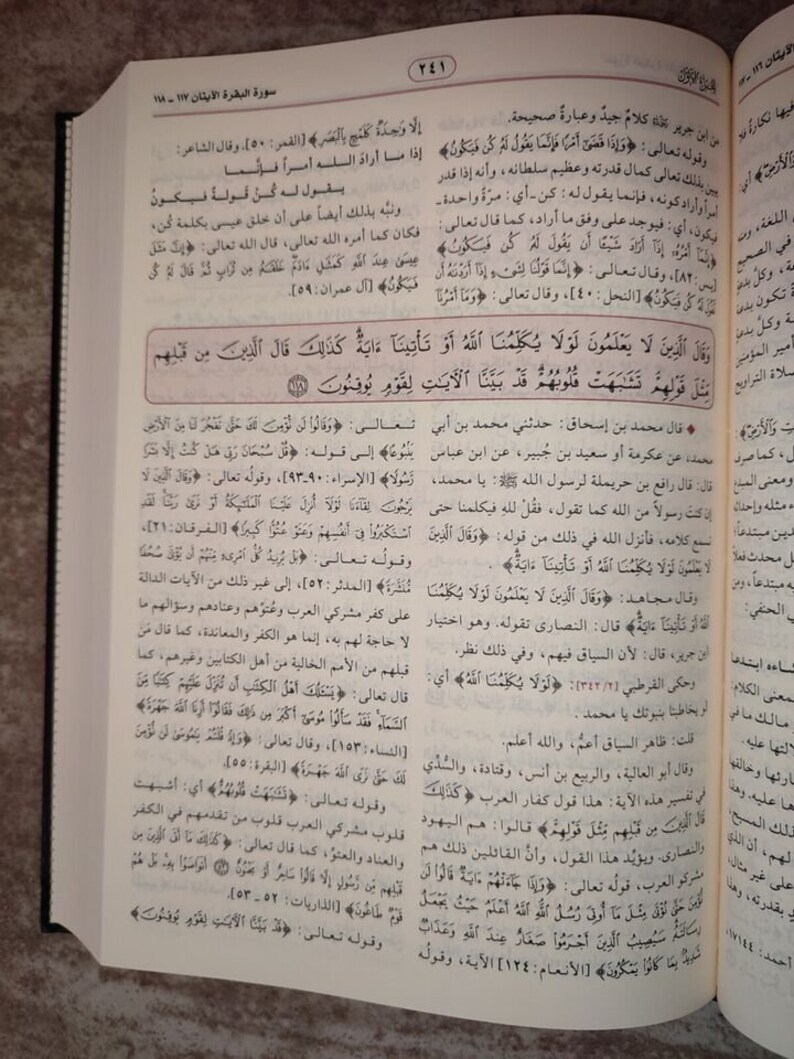 الجزء الأول
٢٤١
سورة البقرة الآيتان ١١٧ - ١١٨
من ابن جرير كلامٌ جيدٌ وعبارةٌ صحيحة.
وقوله تعالى: ﴿وَإِذَا قَضَىٰٓ أَمْرًا فَإِنَّمَا يَقُولُ لَهُۥ كُن فَيَكُونُ﴾
يبين بذلك تعالى كمال قدرته وعظيم سلطانه، وأنه إذا قدر
أمراً وأراد كونه، فإنما يقول له: كن - أي: مرّةً واحدة -
فيكون، أي: فيوجد على وفق ما أراد، كما قال تعالى:
﴿إِنَّمَآ أَمْرُهُۥٓ إِذَآ أَرَادَ شَيْـًٔا أَن يَقُولَ لَهُۥ كُن فَيَكُونُ﴾
[يس: ٨٢]، وقال تعالى: ﴿إِنَّمَا قَوْلُنَا لِشَىْءٍ إِذَآ أَرَدْنَٰهُ أَن
نَّقُولَ لَهُۥ كُن فَيَكُونُ﴾ [النحل: ٤٠]، وقال تعالى: ﴿وَمَآ أَمْرُنَآ
إِلَّا وَٰحِدَةٌ كَلَمْحٍۭ بِٱلْبَصَرِ﴾ [القمر: ٥٠]. وقال الشاعر:
إذا ما أرادَ الله أمراً فإنَّما
يقول له كُنْ قَولةً فيكونُ
ونبَّه بذلك أيضاً على أن خلق عيسى بكلمة كُن،
فكان كما أمره الله تعالى، قال الله تعالى: ﴿إِنَّ مَثَلَ
عِيسَىٰ عِندَ ٱللَّهِ كَمَثَلِ ءَادَمَ خَلَقَهُۥ مِن تُرَابٍ ثُمَّ قَالَ لَهُۥ كُن
فَيَكُونُ﴾ [آل عمران: ٥٩].
وَقَالَ ٱلَّذِينَ لَا يَعْلَمُونَ لَوْلَا يُكَلِّمُنَا ٱللَّهُ أَوْ تَأْتِينَآ ءَايَةٌ كَذَٰلِكَ قَالَ ٱلَّذِينَ مِن قَبْلِهِم
مِّثْلَ قَوْلِهِمْ تَشَٰبَهَتْ قُلُوبُهُمْ قَدْ بَيَّنَّا ٱلْـَٔايَٰتِ لِقَوْمٍ يُوقِنُونَ ١١٨
♦ قال محمد بن إسحاق: حدثني محمد بن أبي
محمد، عن عكرمة أو سعيد بن جُبير، عن ابن عباس
قال: قال رافع بن حريملة لرسول الله ﷺ: يا محمد،
إن كنتَ رسولاً من الله كما تقول، فقُلْ للهِ فيكلمنا حتى
نسمع كلامه، فأنزل الله في ذلك من قوله: ﴿وَقَالَ ٱلَّذِينَ
لَا يَعْلَمُونَ لَوْلَا يُكَلِّمُنَا ٱللَّهُ أَوْ تَأْتِينَآ ءَايَةٌ﴾.
وقال مجاهد: ﴿وَقَالَ ٱلَّذِينَ لَا يَعْلَمُونَ لَوْلَا يُكَلِّمُنَا
ٱللَّهُ أَوْ تَأْتِينَآ ءَايَةٌ﴾ قال: النصارى تقوله. وهو اختيار
ابن جرير، قال: لأن السياق فيهم، وفي ذلك نظر.
وحكى القرطبي [٣٤٢/٢]: ﴿لَوْلَا يُكَلِّمُنَا ٱللَّهُ﴾ أي:
لو يخاطبنا بنبوتك يا محمد.
قلت: ظاهر السياق أعمُّ، والله أعلم.
وقال أبو العالية، والربيع بن أنس، وقتادة، والسُّدّي
في تفسير هذه الآية: هذا قول كفار العرب ﴿كَذَٰلِكَ
قَالَ ٱلَّذِينَ مِن قَبْلِهِم مِّثْلَ قَوْلِهِمْ﴾ قالوا: هم اليهود
والنصارى. ويؤيِّد هذا القول، وأنَّ القائلين ذلك هم
مشركو العرب، قولُه تعالى: ﴿وَإِذَا جَآءَتْهُمْ ءَايَةٌ قَالُوا۟ لَن
نُّؤْمِنَ حَتَّىٰ نُؤْتَىٰ مِثْلَ مَآ أُوتِىَ رُسُلُ ٱللَّهِ ٱللَّهُ أَعْلَمُ حَيْثُ يَجْعَلُ
رِسَالَتَهُۥ سَيُصِيبُ ٱلَّذِينَ أَجْرَمُوا۟ صَغَارٌ عِندَ ٱللَّهِ وَعَذَابٌ
شَدِيدٌۢ بِمَا كَانُوا۟ يَمْكُرُونَ﴾ [الأنعام: ١٢٤] الآية، وقولُه
تعالى: ﴿وَقَالُوا۟ لَن نُّؤْمِنَ لَكَ حَتَّىٰ تَفْجُرَ لَنَا مِنَ ٱلْأَرْضِ
يَنۢبُوعًا﴾ إلى قوله: ﴿قُلْ سُبْحَانَ رَبِّى هَلْ كُنتُ إِلَّا بَشَرًا
رَّسُولًا﴾ [الإسراء: ٩٠-٩٣]، وقولُه تعالى: ﴿وَقَالَ ٱلَّذِينَ لَا
يَرْجُونَ لِقَآءَنَا لَوْلَآ أُنزِلَ عَلَيْنَا ٱلْمَلَٰٓئِكَةُ أَوْ نَرَىٰ رَبَّنَا لَقَدِ
ٱسْتَكْبَرُوا۟ فِىٓ أَنفُسِهِمْ وَعَتَوْ عُتُوًّا كَبِيرًا﴾ [الفرقان: ٢١]،
وقولُه تعالى: ﴿بَلْ يُرِيدُ كُلُّ ٱمْرِئٍ مِّنْهُمْ أَن يُؤْتَىٰ صُحُفًا
مُّنَشَّرَةً﴾ [المدثر: ٥٢]، إلى غير ذلك من الآيات الدالة
على كفر مشركي العرب وعُتوِّهم وعنادهم وسؤالهم ما
لا حاجة لهم به، إنما هو الكفر والمعاندة، كما قال مَن
قبلهم من الأمم الخالية من أهل الكتابين وغيرهم، كما
قال تعالى: ﴿يَسْـَٔلُكَ أَهْلُ ٱلْكِتَٰبِ أَن تُنَزِّلَ عَلَيْهِمْ كِتَٰبًا مِّنَ
ٱلسَّمَآءِ فَقَدْ سَأَلُوا۟ مُوسَىٰٓ أَكْبَرَ مِن ذَٰلِكَ فَقَالُوٓا۟ أَرِنَا ٱللَّهَ جَهْرَةً﴾
[النساء: ١٥٣]، وقال تعالى: ﴿وَإِذْ قُلْتُمْ يَٰمُوسَىٰ لَن نُّؤْمِنَ
لَكَ حَتَّىٰ نَرَى ٱللَّهَ جَهْرَةً﴾ [البقرة: ٥٥].
وقوله تعالى: ﴿تَشَٰبَهَتْ قُلُوبُهُمْ﴾ أي: أشبهت
قلوب مشركي العرب قلوب من تقدمهم في الكفر
والعناد والعتوّ، كما قال تعالى: ﴿كَذَٰلِكَ مَآ أَتَى ٱلَّذِينَ مِن
قَبْلِهِم مِّن رَّسُولٍ إِلَّا قَالُوا۟ سَاحِرٌ أَوْ مَجْنُونٌ ۝ أَتَوَاصَوْا۟ بِهِۦ بَلْ هُمْ
قَوْمٌ طَاغُونَ﴾ [الذاريات: ٥٢ - ٥٣].
وقوله تعالى: ﴿قَدْ بَيَّنَّا ٱلْـَٔايَٰتِ لِقَوْمٍ يُوقِنُونَ﴾